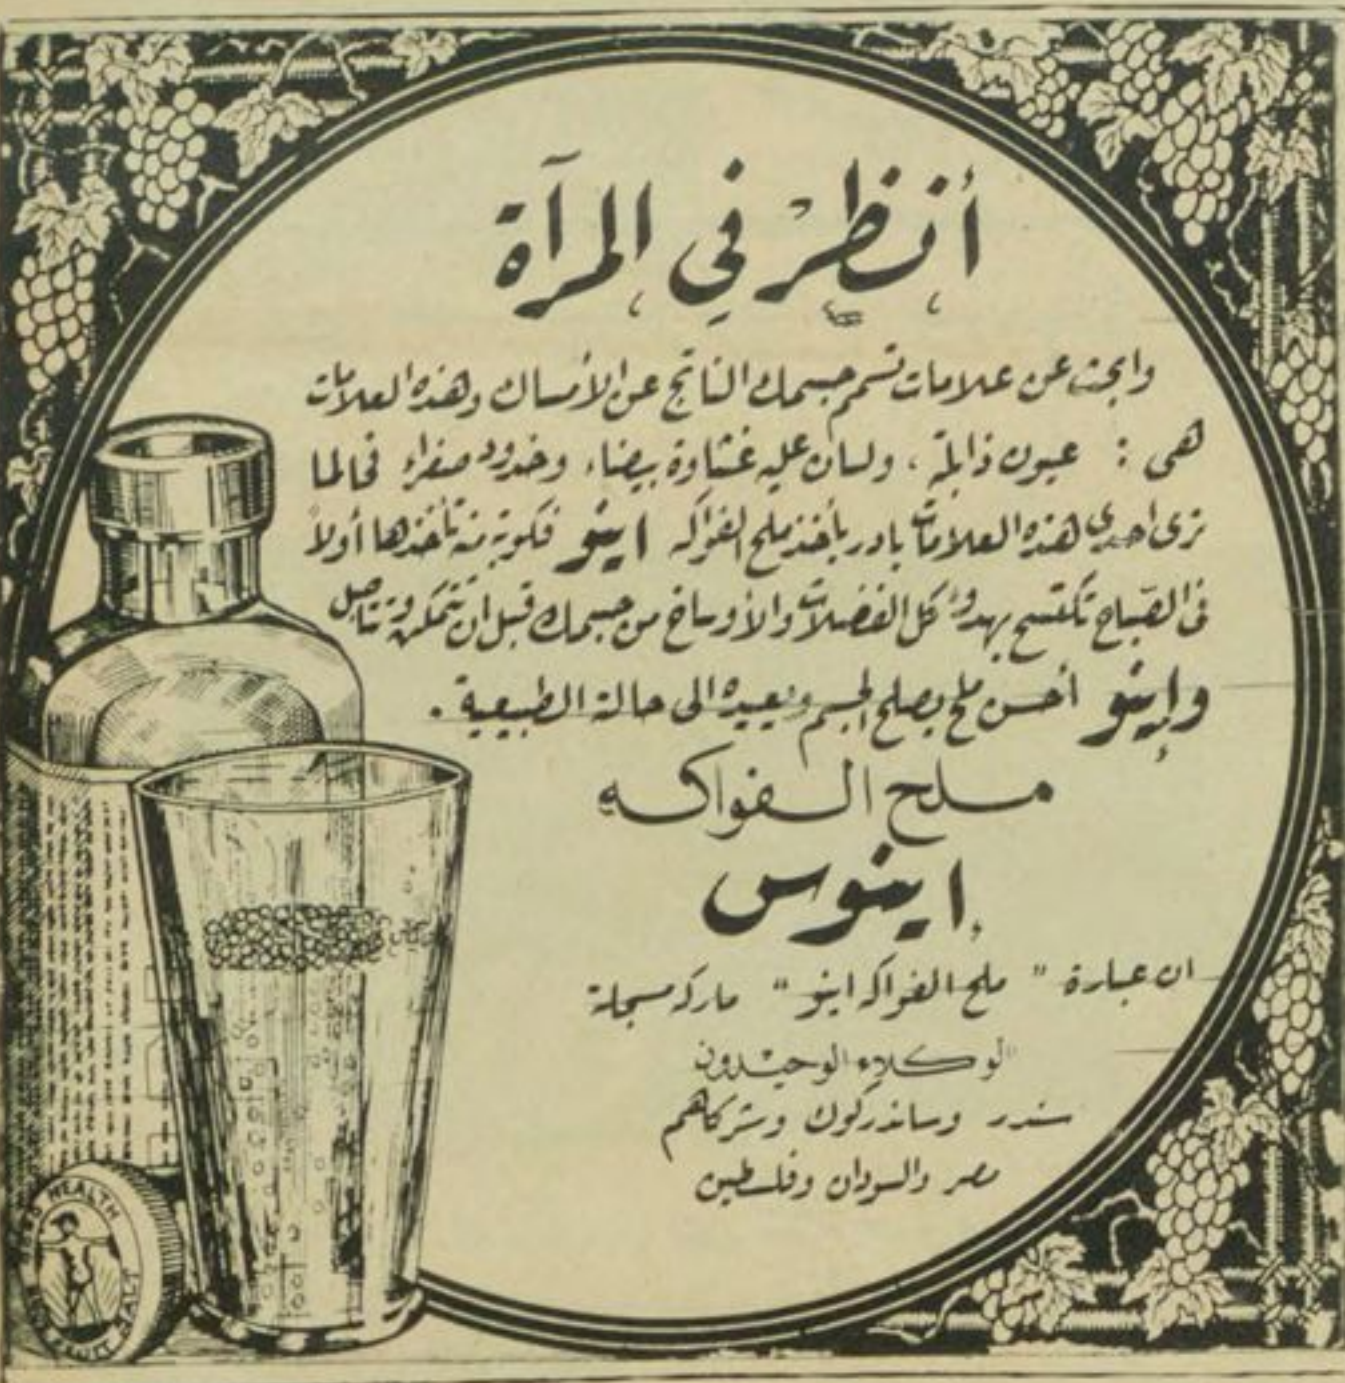 أنظر في المرآة
وابحث عن علامات تسمم جسمك الناتج عن الأمساك وهذه العلامات
هى : عيون ذابلة ، ولسان عليه غشاوة بيضاء وخدود صفراء فحالما
ترى احدى هذه العلامات بادر بأخذ ملح الفواكه اينو فكوبة منه تأخذها أولاً
فى الصّباح تكتسح بهدوء كل الفضلات والأوساخ من جسمك قبل ان تتمكن وتتأصل
وإينو أحسن ملح يصلح الجسم ويعيده الى حالته الطبيعية .
ملح الفواكه
اينوس
ان عبارة " ملح الفواكه اينو " ماركه مسجلة
الوكلاء الوحيدون
سندر وساندركوك وشركاهم
مصر والسودان وفلسطين
HEALTH
FRUIT SALT